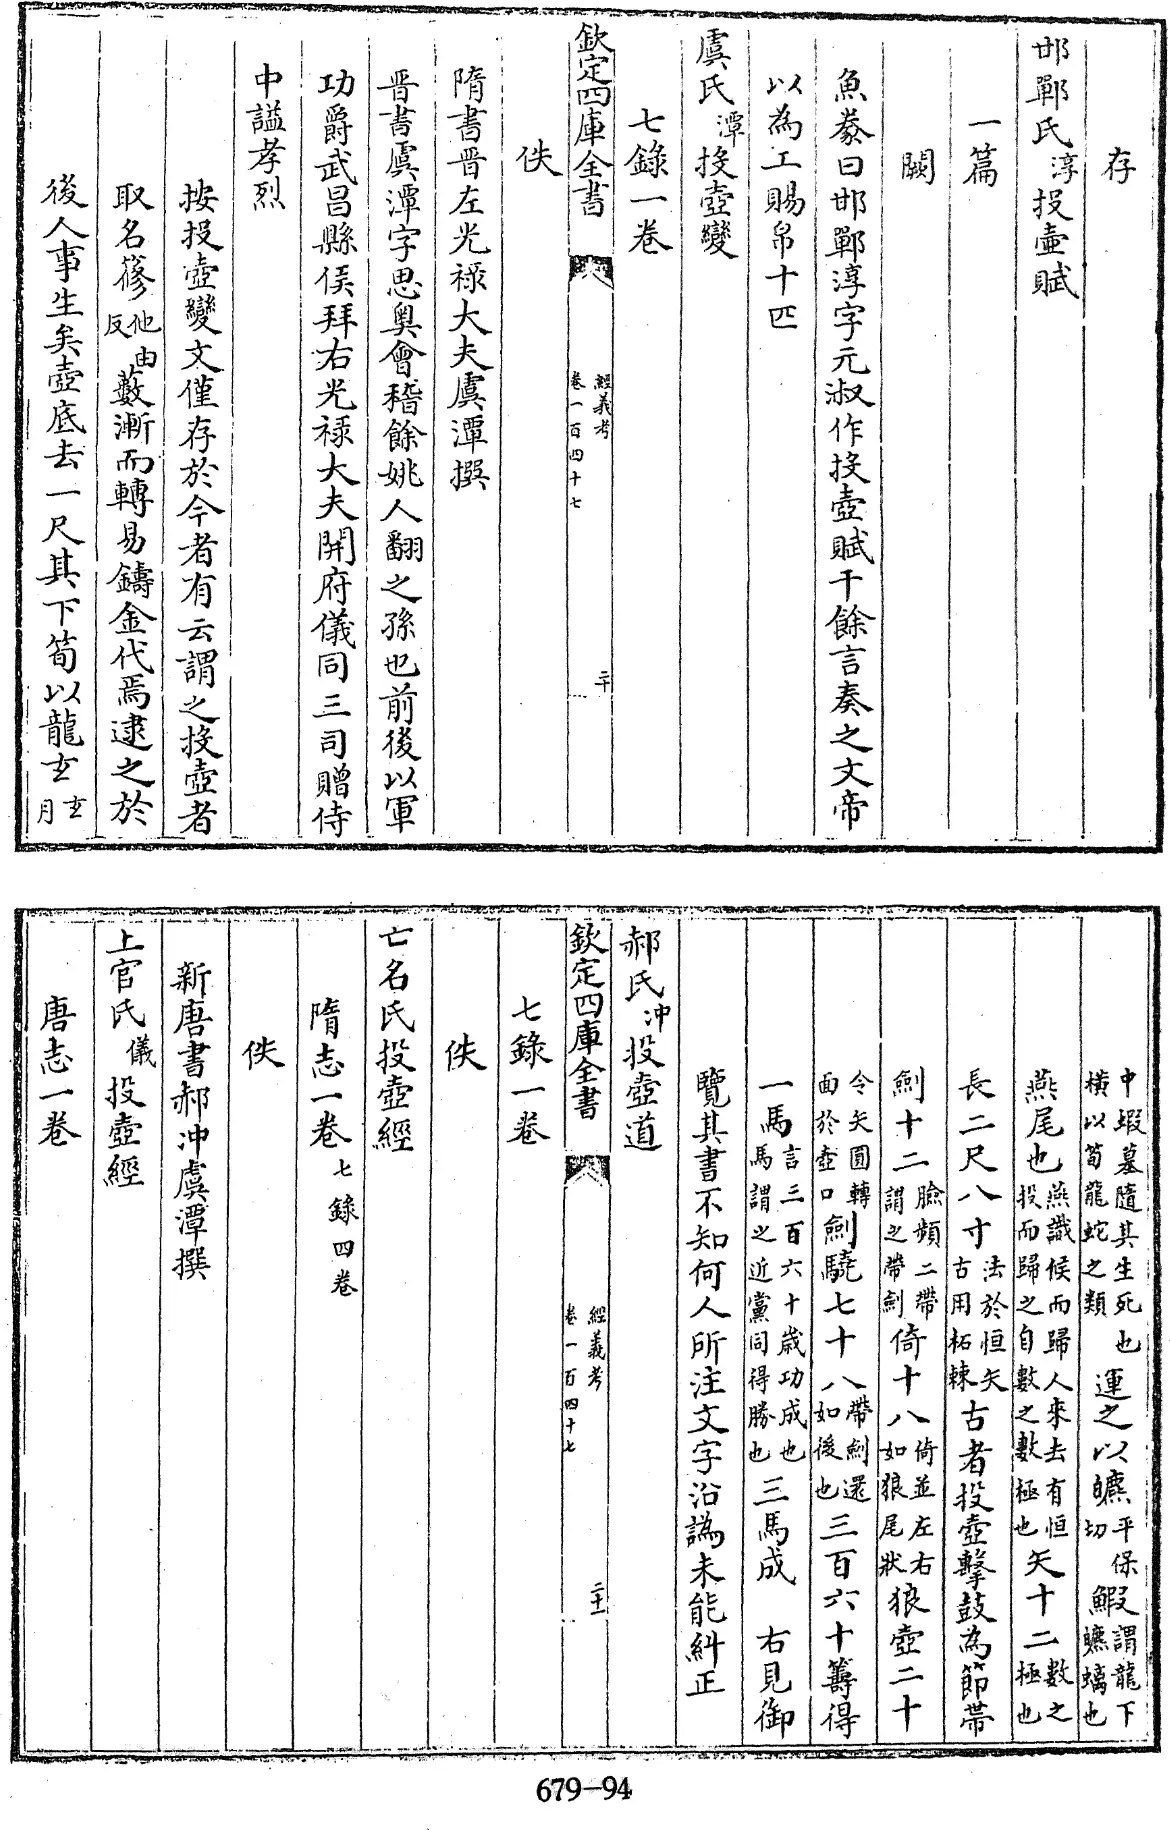 存
邯鄲氏淳投壺賦
一篇
闕
魚豢曰邯鄲淳字元淑作投壺賦千餘言奏之文帝
以為工賜帛十匹
虞氏潭投壺變
七錄一卷
欽定四庫全書
經義考
卷一百四十七
二十
佚
隋書晋左光祿大夫虞潭撰
晋書虞潭字思奥會稽餘姚人翻之孫也前後以軍
功爵武昌縣侯拜右光祿大夫開府儀同三司贈侍
中謚孝烈
按投壺變文僅存於今者有云謂之投壺者
取名篠他由反藪漸而轉易鑄金代焉逮之於
後人事生矣壺底去一尺其下筍以龍玄玄月
中蝦墓隨其生死也
橫以筍龍蛇之類運之以䗪平保切鰕謂龍下䗪螭也
燕尾也燕識候而歸人來去有恒投而歸之自數之數極也矢十二數之極也
長二尺八寸法於恒矢古用柘棘古者投壺擊鼓為節帶
劍十二臉頻二帶謂之帶劍倚十八倚並左右如狼尾狀狼壺二十
令矢圓轉面於壺口劍驍七十八帶劍還如後也三百六十籌得
一馬言三百六十歳功成也馬謂之近黨同得勝也三馬成 右見御
覽其書不知何人所注文字沿譌未能糾正
郝氏沖投壺道
欽定四庫全書
經義考
卷一百四十七
二十一
七錄一卷
佚
亡名氏投壺經
隋志一卷七錄四卷
佚
新唐書郝沖虞潭撰
上官氏儀投壺經
唐志一卷
679-94